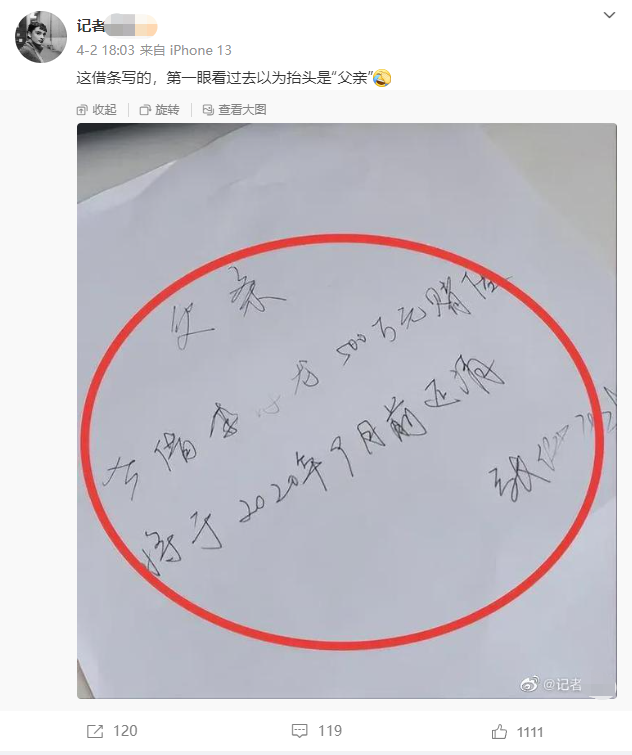 记者
4-2 18:03 来自 iPhone 13
这借条写的，第一眼看过去以为抬头是“父亲”
收起 旋转 查看大图
今借李小龙500万元赌债
将于2020年9月前还清
@记者
120 119 1111